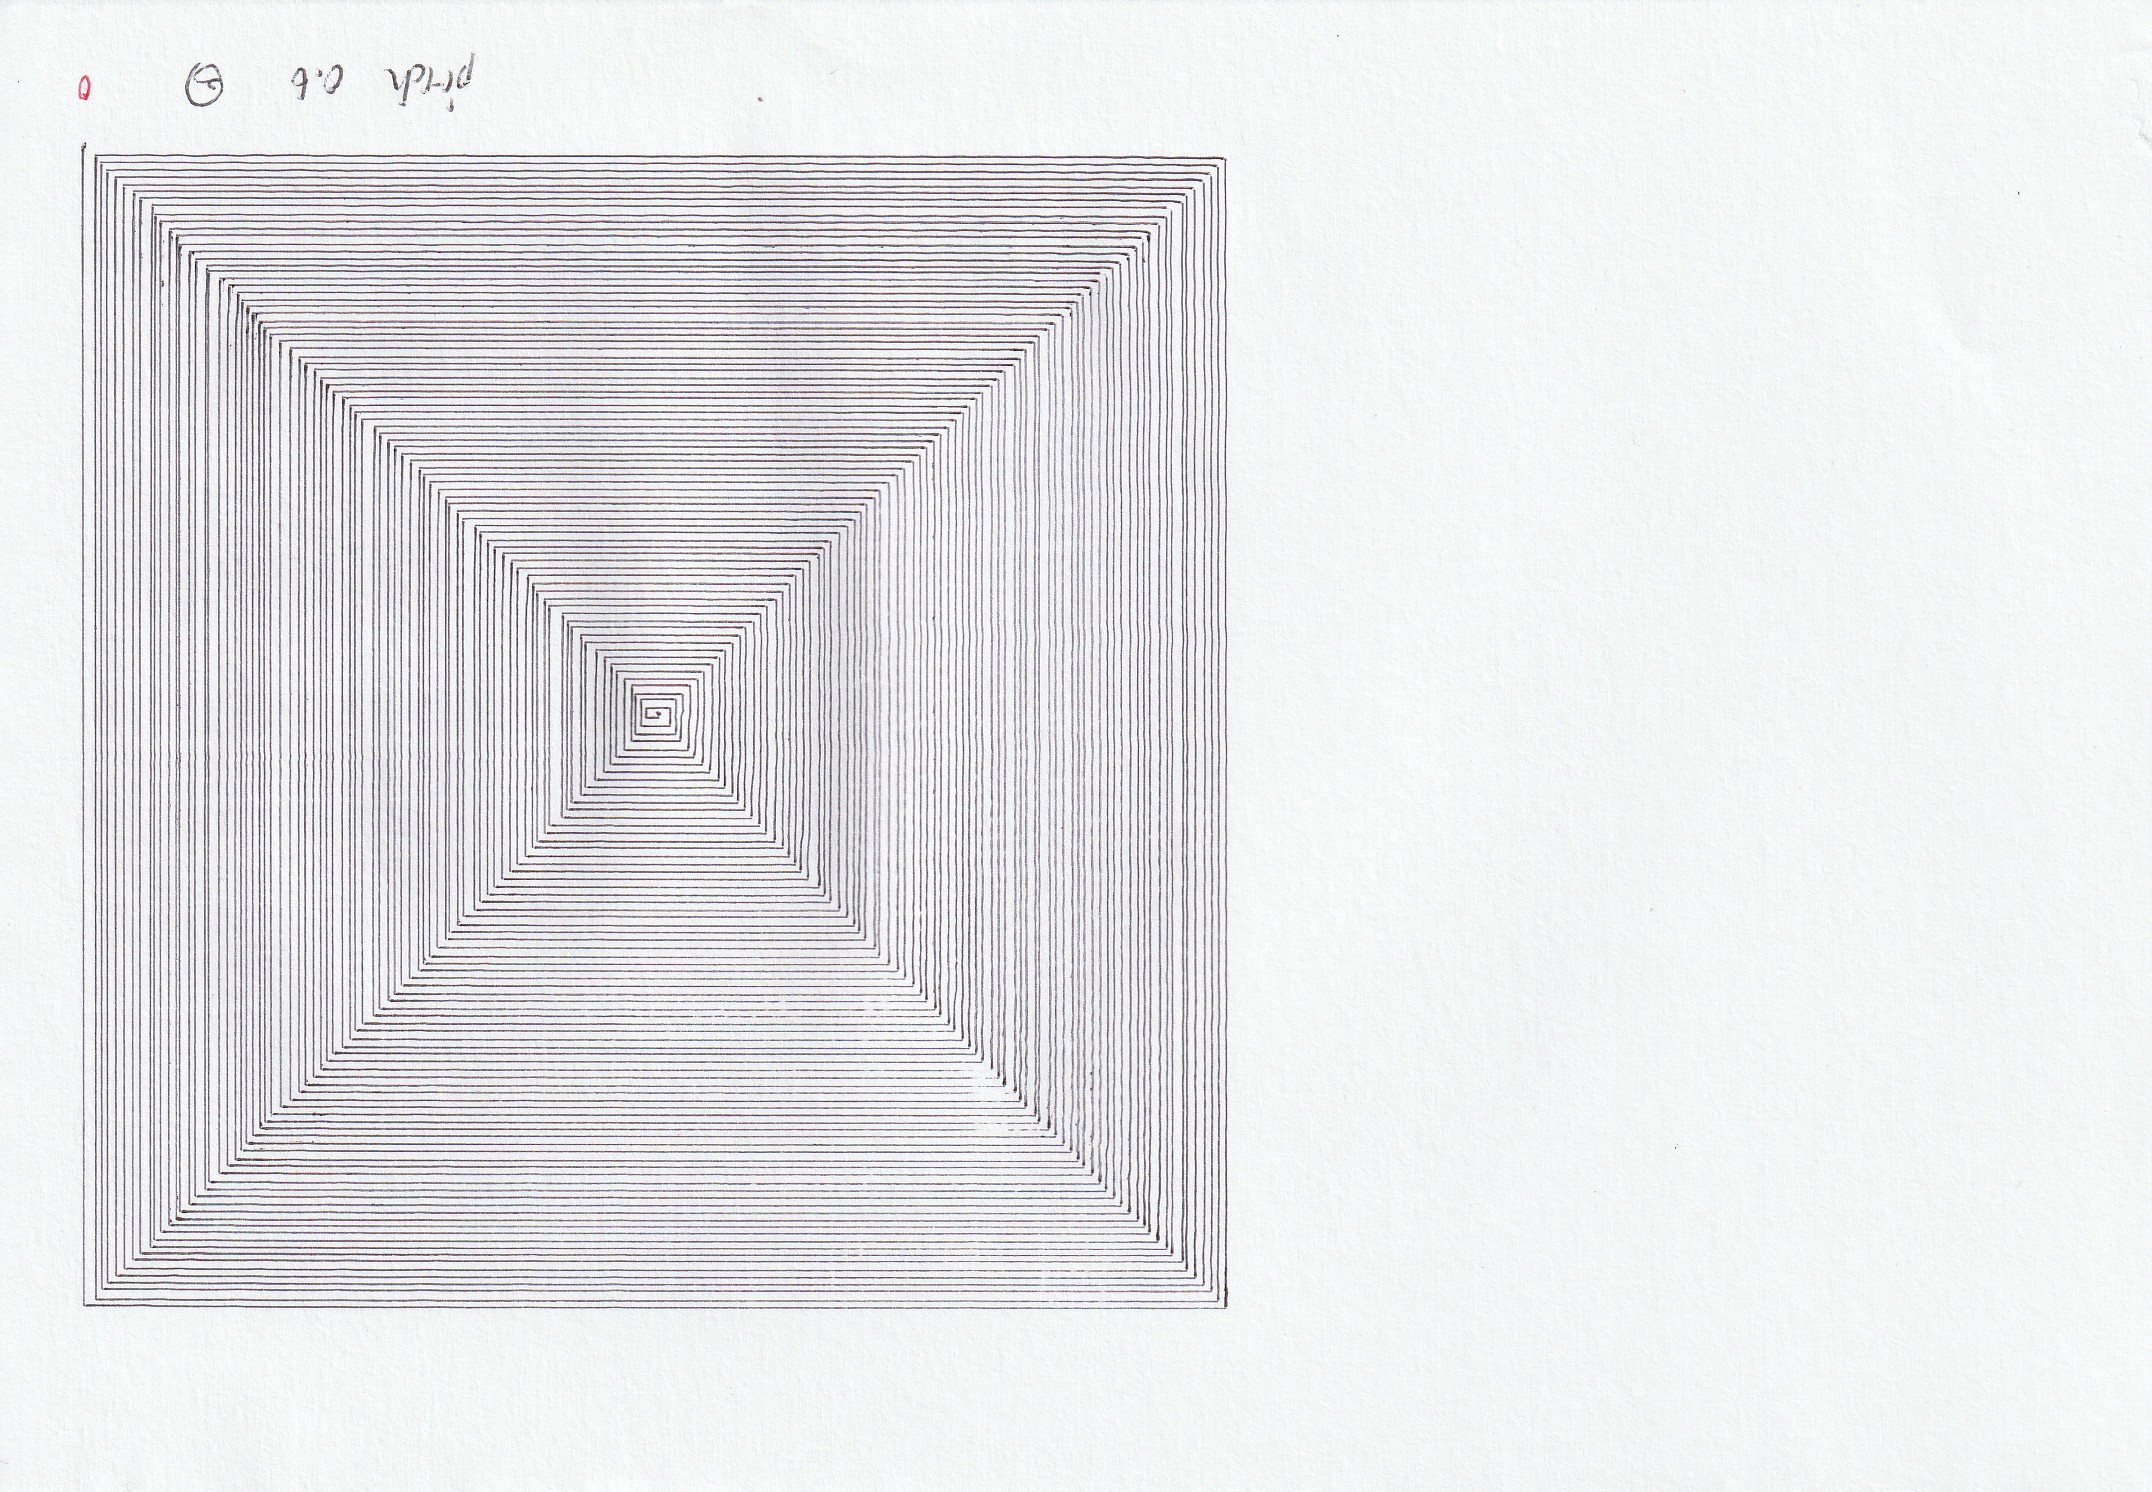 pitch 0.6 ② 0